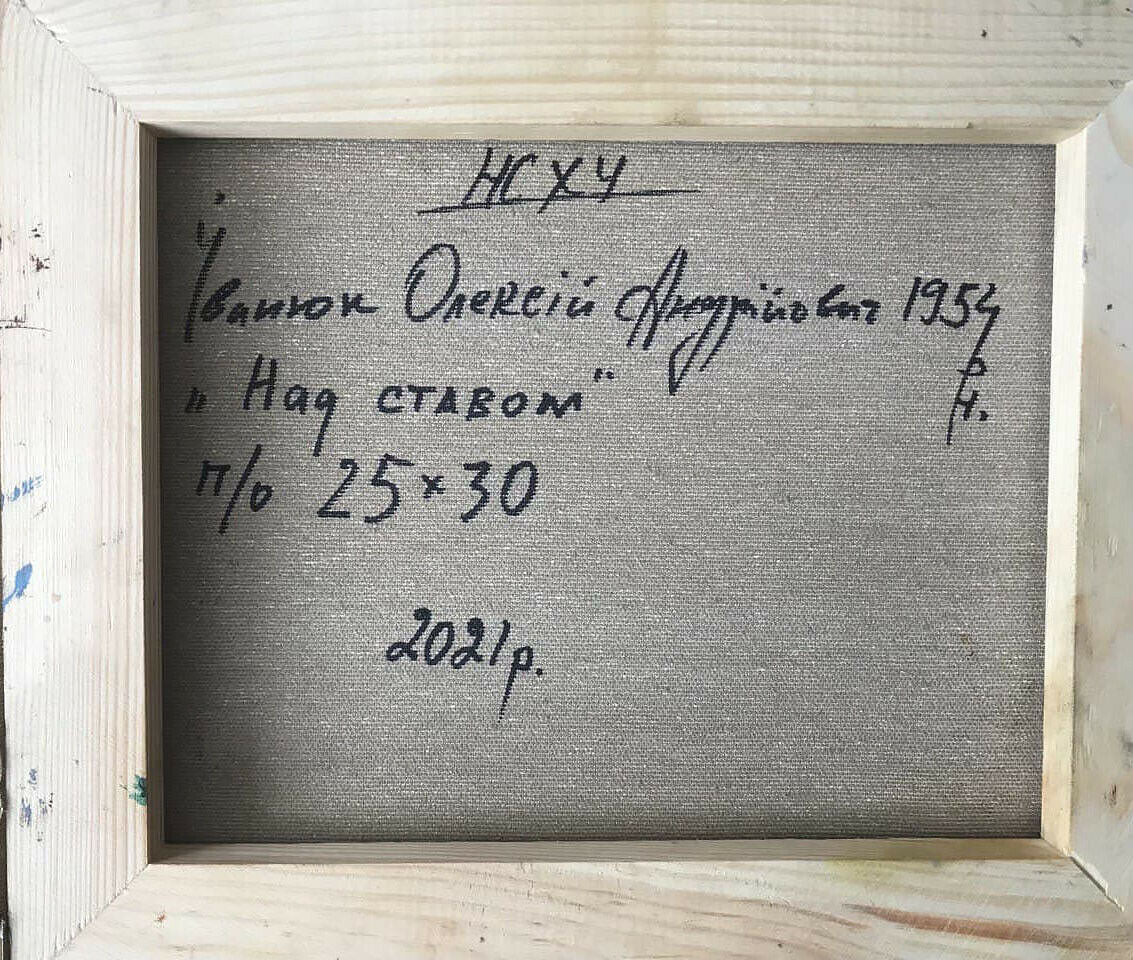 НСХУ
Іванюк Олексій Андрійович 1954
р
н.
„Над ставом"
п/о 25×30
2021р.